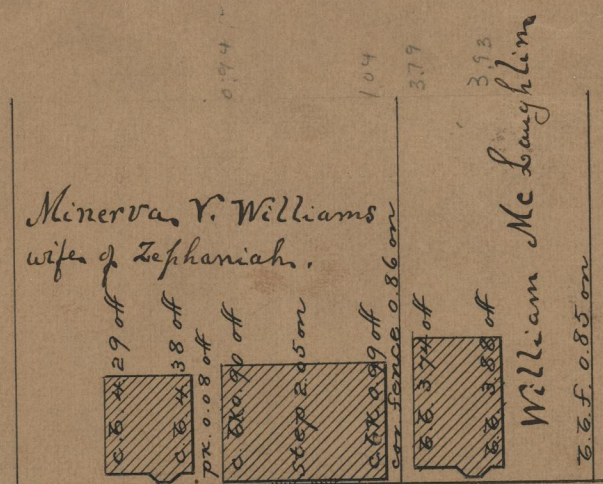 0.94
1.04
3.79
3.93
Minerva V. Williams
wife of Zephaniah.
William Mc Laughlin
4.29 off
C.B. 4.38 off
pk. 0.08 off
C. BK 0.90 off
Step 2.05 on
C. BK. 0.99 off
cor fence 0.86 on
3.74 off
3.88 off
0.85 on